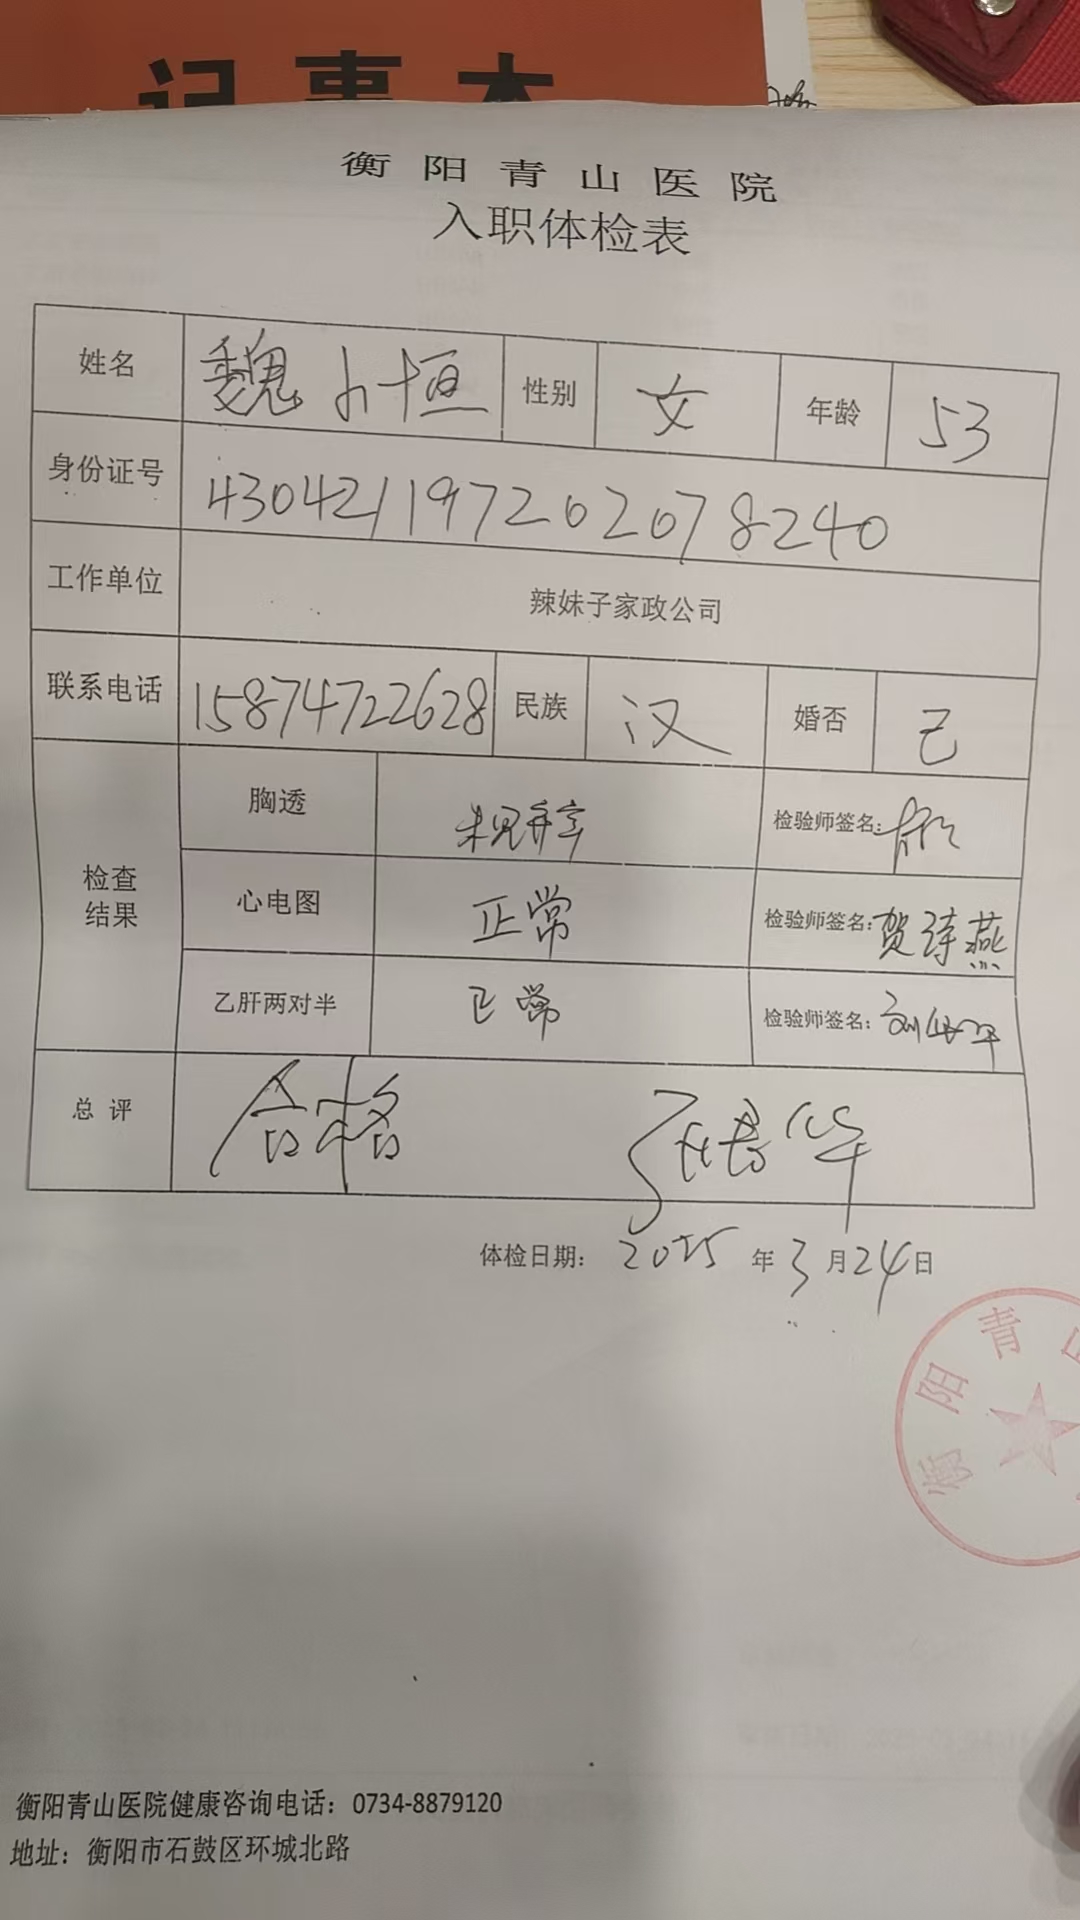 记事本
衡阳青山医院
入职体检表
姓名 魏小恒 性别 女 年龄 53
身份证号 430421197202078240
工作单位 辣妹子家政公司
联系电话 15874722628 民族 汉 婚否 已
检查结果
胸透 未见异常 检验师签名:
心电图 正常 检验师签名: 贺诗燕
乙肝两对半 正常 检验师签名:
总评 合格
体检日期: 2025 年 3 月 24 日
衡阳青山
衡阳青山医院健康咨询电话: 0734-8879120
地址: 衡阳市石鼓区环城北路